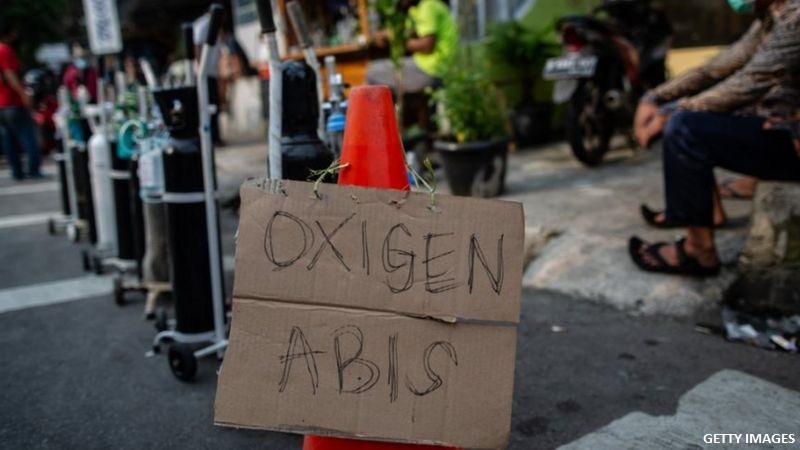 OXIGEN
ABIS
GETTY IMAGES